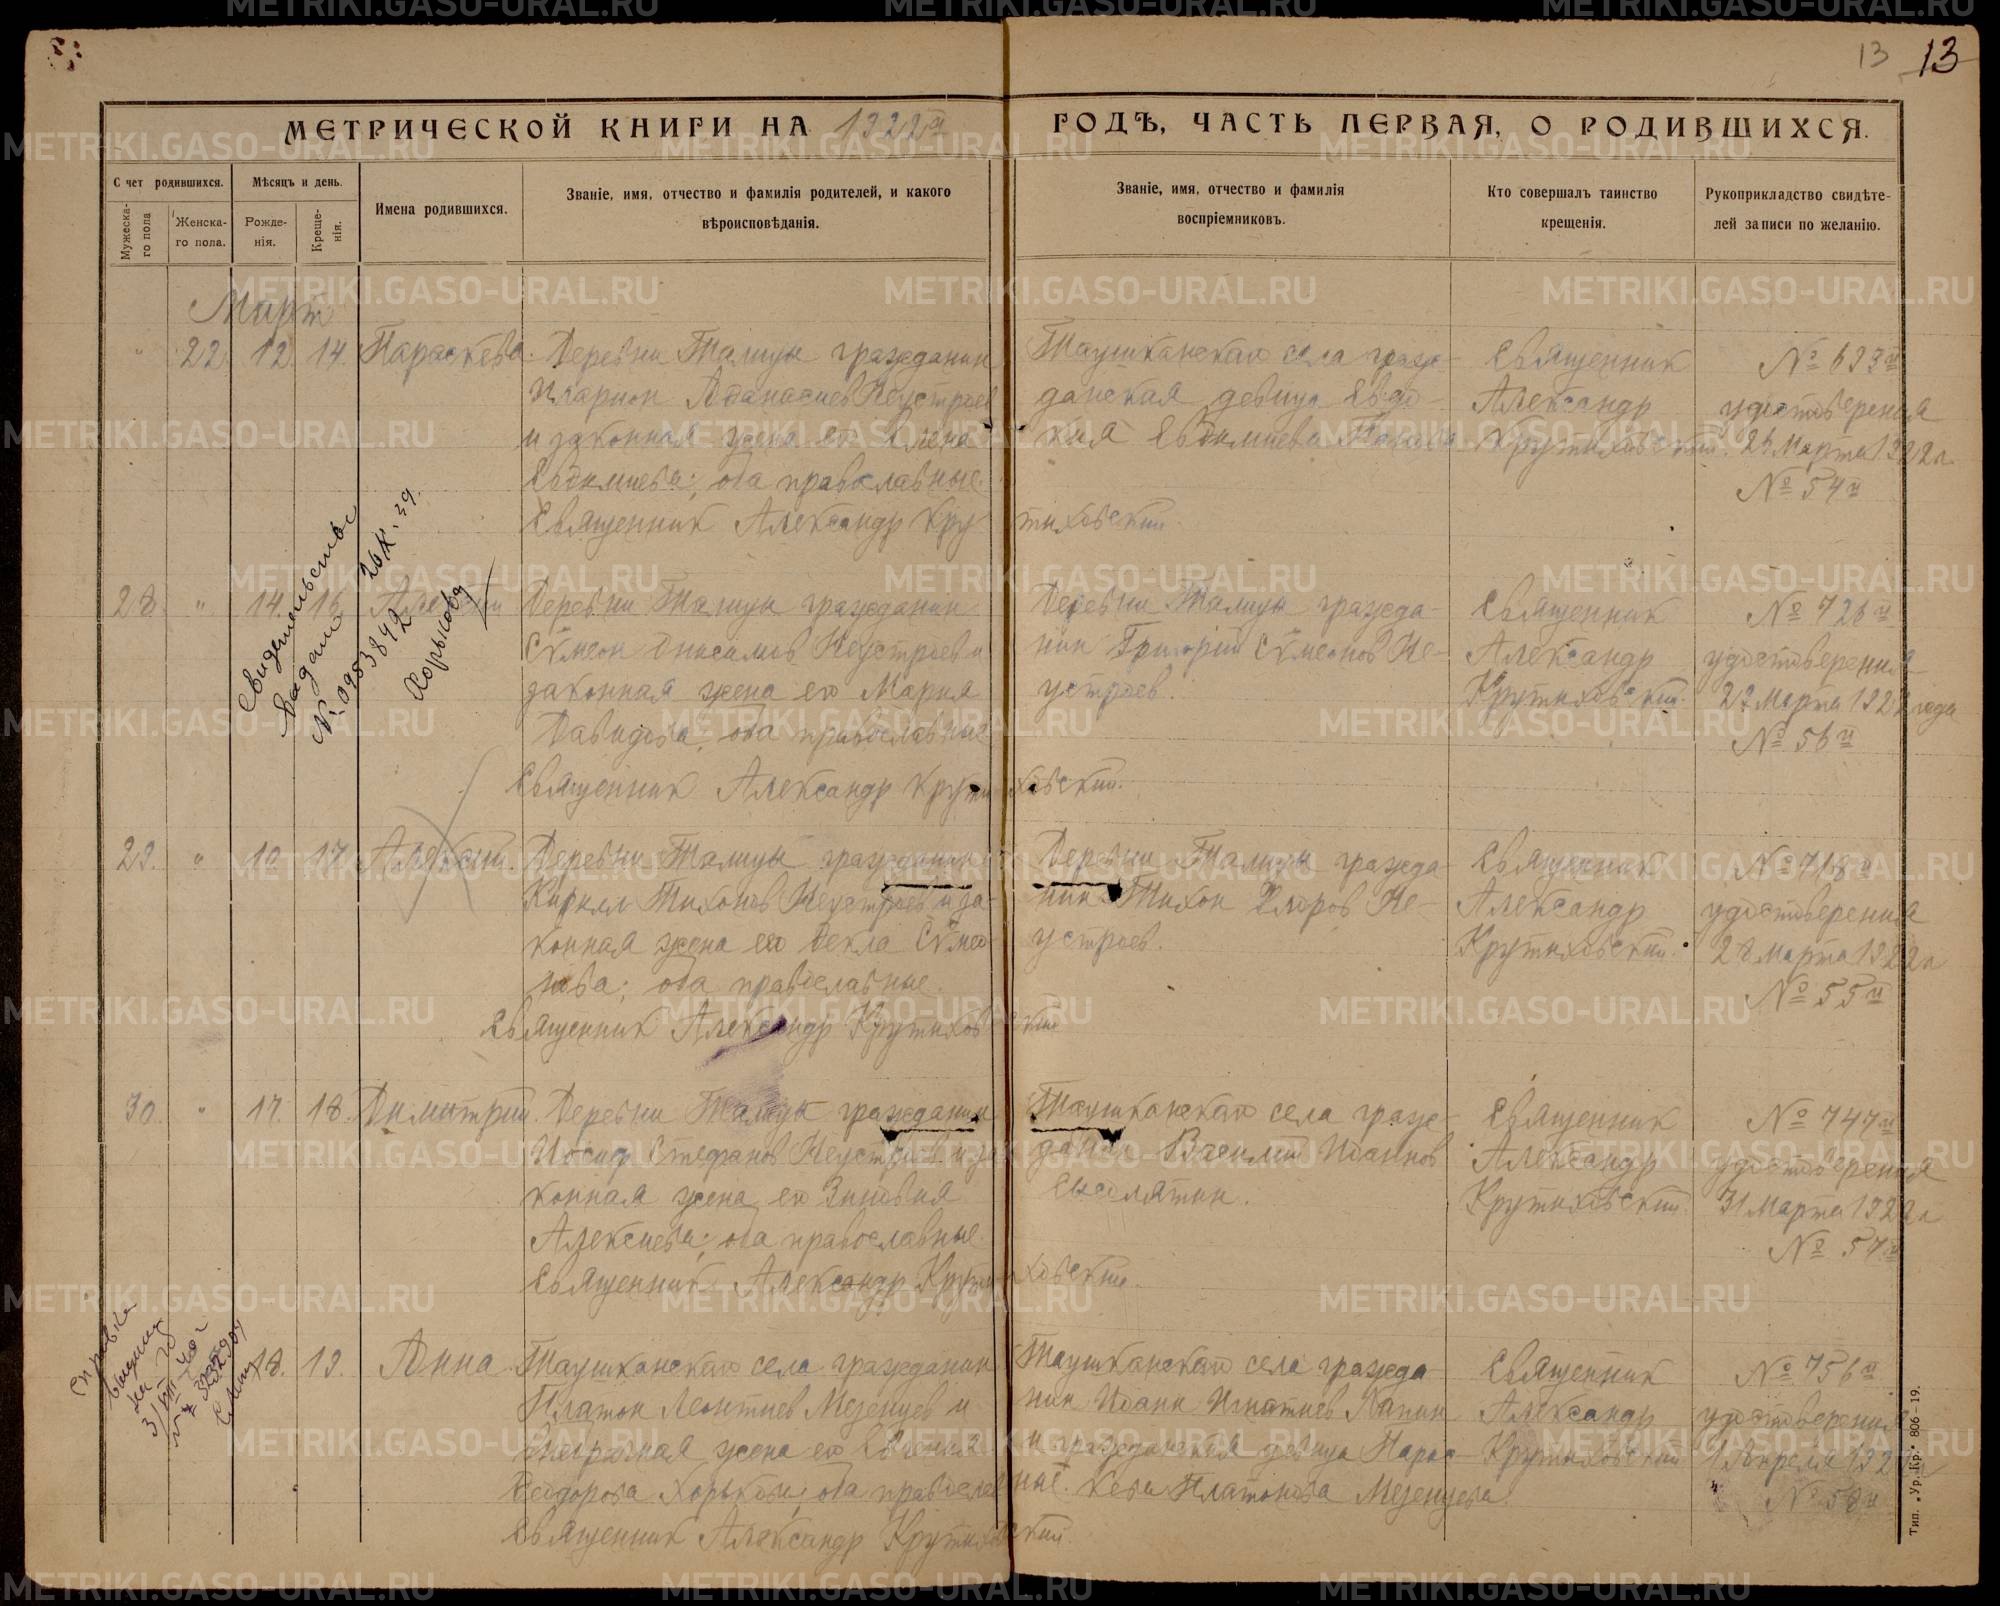 13 13
МЕТРИЧЕСКОЙ КНИГИ НА 1922й ГОДЪ, ЧАСТЬ ПЕРВАЯ, О РОДИВШИХСЯ.
Счет родившихся.
Мужеска-го пола
Женска-го пола.
Мѣсяцъ и день.
Рожде-нія.
Креще-нія.
Имена родившихся.
Званіе, имя, отчество и фамилія родителей, и какого
вѣроисповѣданія.
Званіе, имя, отчество и фамилія
воспріемниковъ.
Кто совершалъ таинство
крещенія.
Рукоприкладство свидѣте-
лей записи по желанію.
Март
" 22 12 14 Параскева.
Деревни Талицы гражданин
Иларион Афанасиев Неустроев
и законная жена его Елена
Евфимиева; оба православные.
Священник Александр Крутиховский.
Таушканскаго села граж-
данская девица Евдо-
кия Евфимиева
Священник
Александр
Крутиховский.
удостоверения
Марта 1922 г.
№ 54й
28 " 14. 16.
Деревни Талицы гражданин
Сѵмеон Онисимов Неустроев и
законная жена его Мария
Давидова, оба православные
Священник Александр Крутиховский.
Деревни Талицы гражда-
нин Григорий Сѵмеонов Не-
устроев.
Священник
Александр
Крутиховский.
№ 726й
удостоверения
Марта 1922 года
№ 56й
Свидетельство
выдано
№ 0953842
Хорькова
29. " 17. Алексий.
Деревни Талицы гражданин
Кирилл Тихонов Неустроев и за-
конная жена его Фекла Сѵмео-
нова; оба православные.
Священник Александр Крутиховский
Деревни Талицы гражда-
нин Тихон Флоров Не-
устроев.
Священник
Александр
Крутиховский.
№ 718й
удостоверения
28 Марта 1922 г.
№ 55й
30. " 17. 18. Димитрий.
Деревни Талицы гражданин
Иосиф Стефанов Неустроев и за-
конная жена его Зиновия
Алексиева; оба православные.
Священник Александр Крутиховский.
Таушканскаго села граж-
данин Василий Иоаннов
Священник
Александр
Крутиховский.
№ 747й
удостоверения
31 Марта 1922 г.
№ 57й
Справка
18. 19. Анна.
Таушканскаго села гражданин
Платон Леонтиев Мезенцев и
жена его Евгения
Феодорова Хорькова; оба православные.
Священник Александр Крутиховский.
Таушканскаго села гражда-
нин Иоанн Игнатиев Папин
и гражданская девица Парас-
кева Платонова Мезенцева.
Священник
Александр
Крутиховский
№ 756й
удостоверения
1 Апреля 1922
№ 58й
Тип. „Ур. Кр.“ 806—19.
METRIKI.GASO-URAL.RU